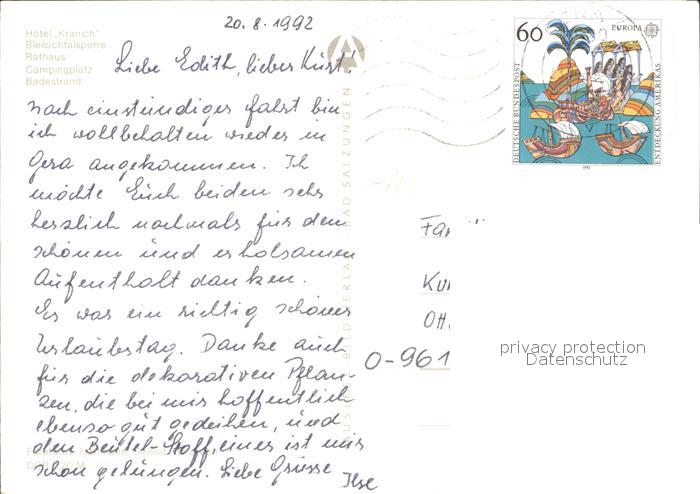 20.8.1992
Hotel „Kranich"
Bleilochtalsperre
Rathaus
Campingplatz
Badestrand
Liebe Edith, lieber Kurt!
nach einstündiger Fahrt bin
ich wohlbehalten wieder in
Gera angekommen. Ich
möchte Euch beiden sehr
herzlich nochmals für den
schönen und erholsamen
Aufenthalt danken.
Es war ein richtig schöner
Urlaubstag. Danke auch
für die dekorativen Pflan-
zen, die bei mir hoffentlich
ebenso gut gedeihen, und
den Beutel-Stoff, eines ist mir
schon gelungen. Liebe Grüsse
Ilse
BAD SALZUNGEN
60
EUROPA
DEUTSCHE BUNDESPOST
ENTDECKUNG AMERIKAS
1992
Fa
Ku
Ott
O-961
privacy protection
Datenschutz